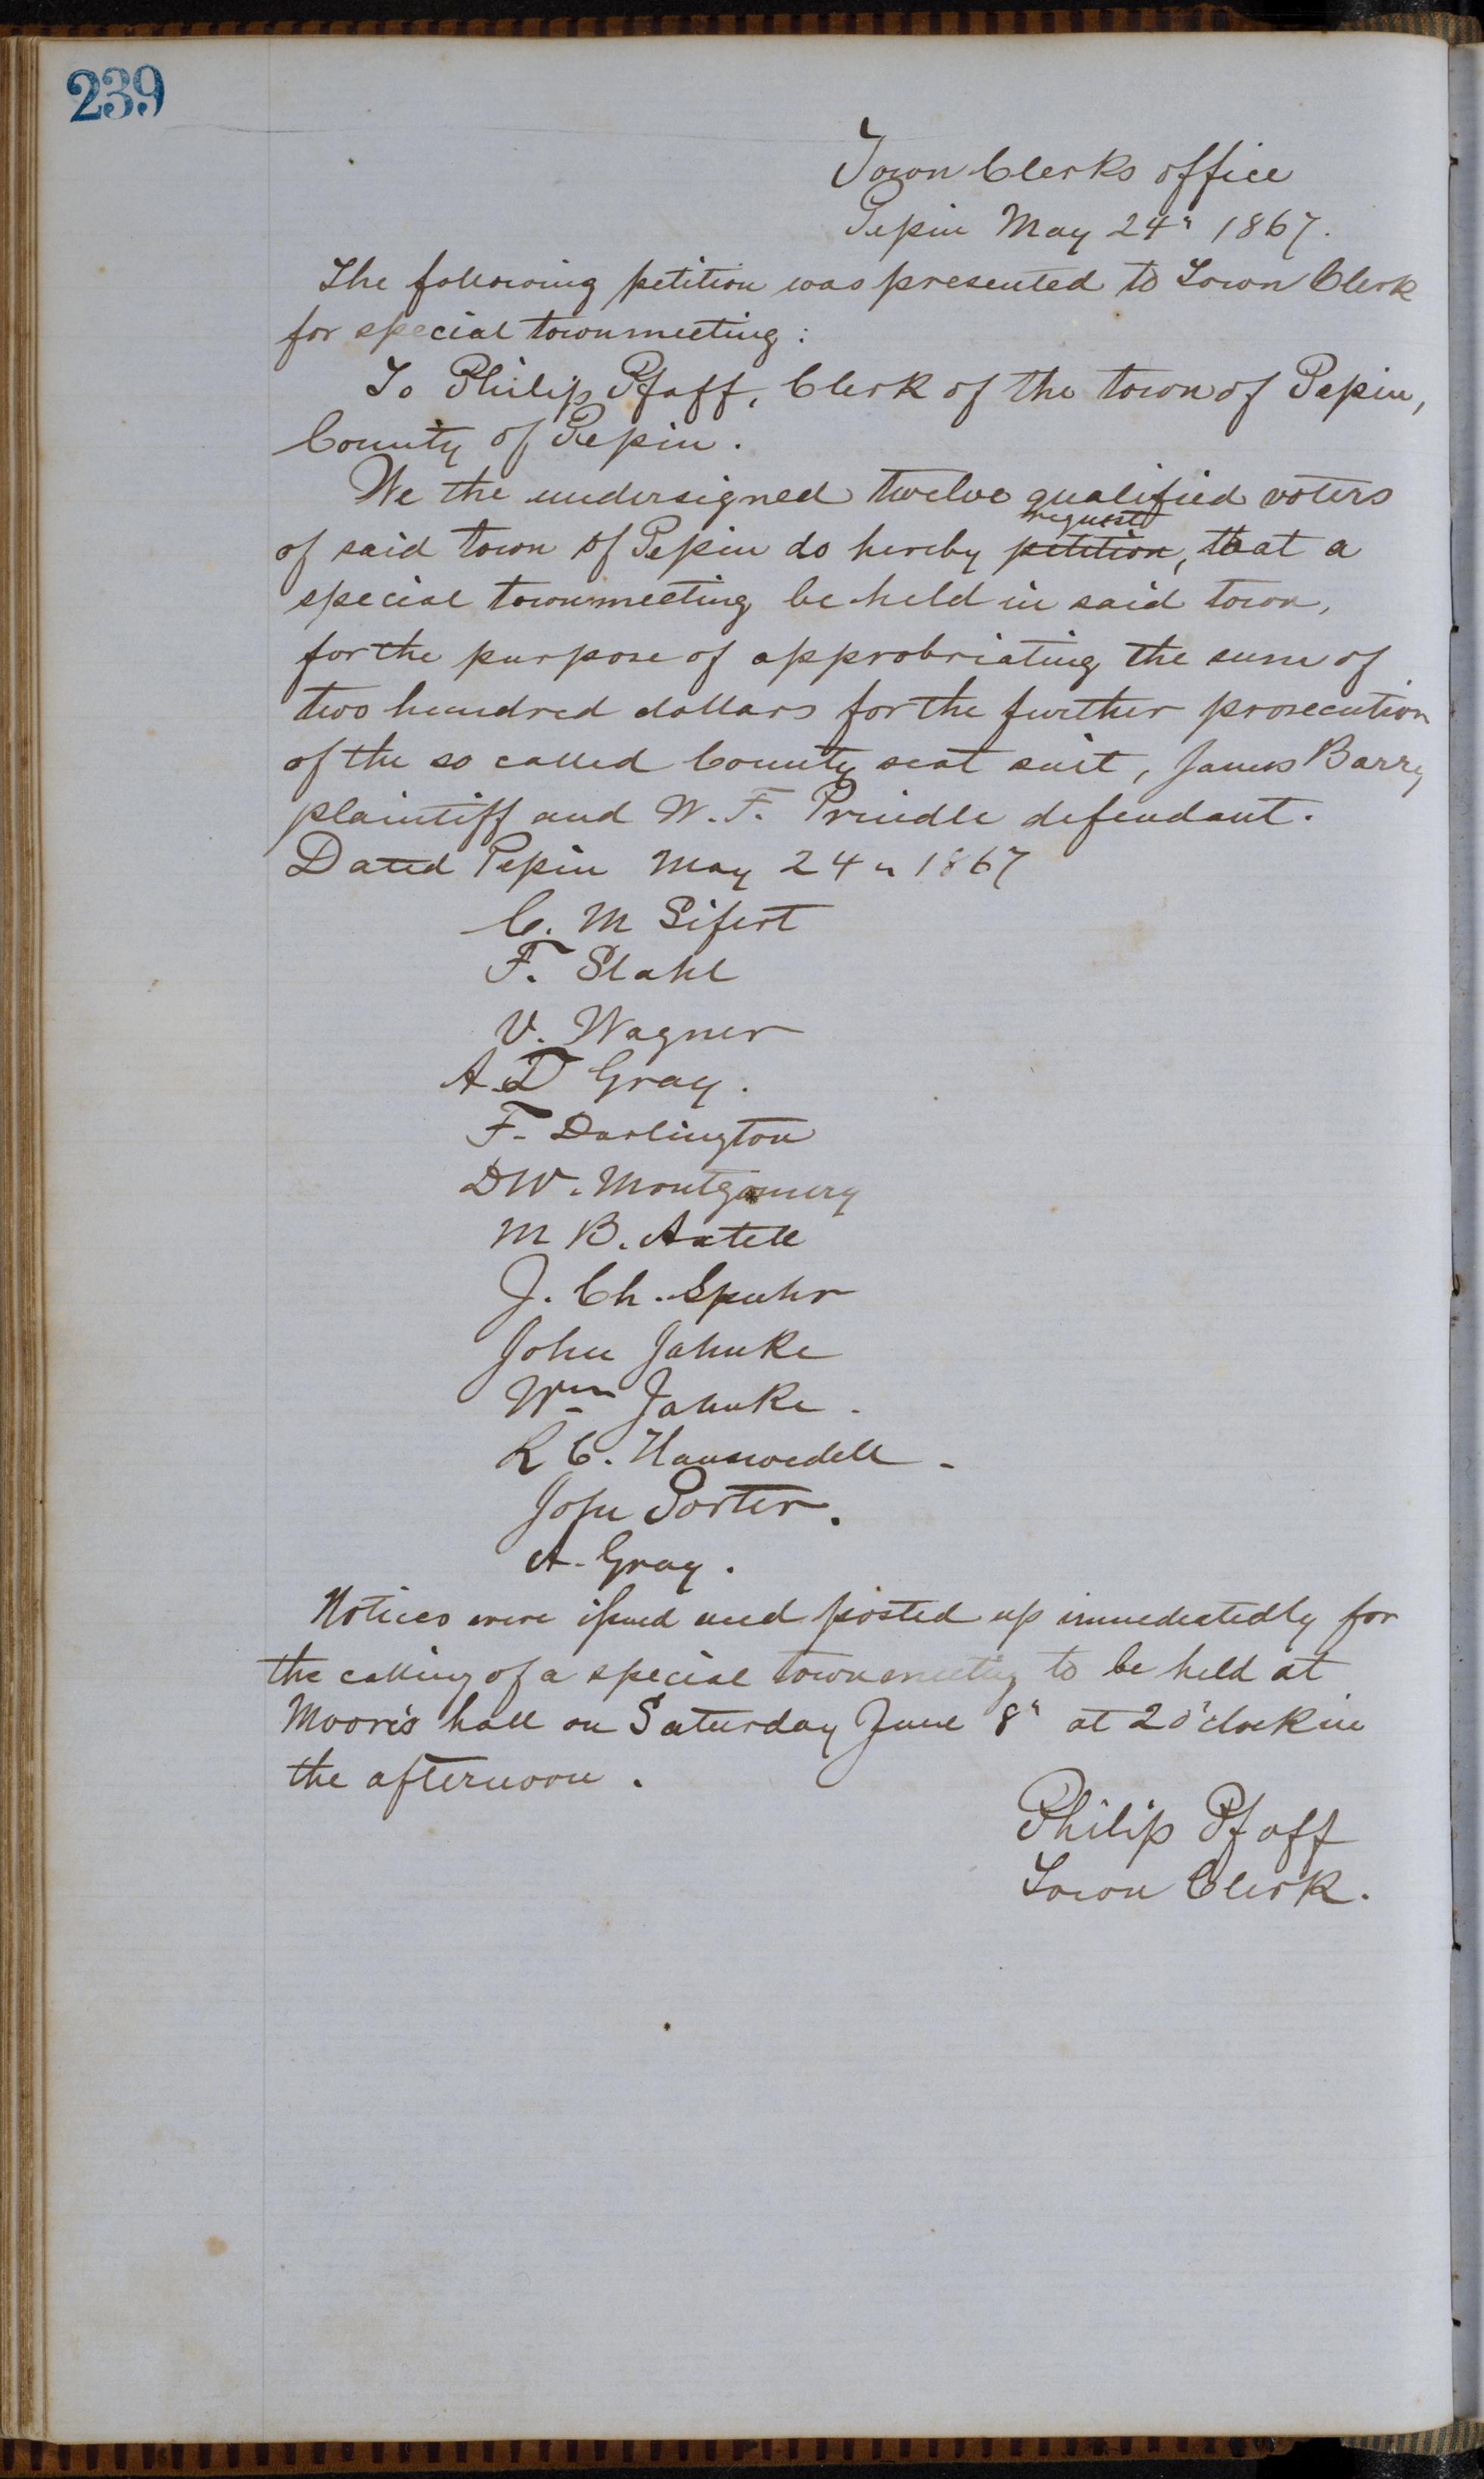 239
Town Clerks office
Pepin May 24" 1867.
The following petition was presented to Town Clerk
for special townmeeting:
To Philip Pfaff, Clerk of the town of Pepin,
County of Pepin.
We the undersigned twelve qualified voters
request
of said town of Pepin do hereby petition, that a
special townmeeting be held in said town,
for the purpose of approbriating the sum of
two hundred dollars for the further prosecution
of the so called County seat suit, James Barry
plaintiff and W. F. Prindle defendant.
Dated Pepin May 24" 1867
C. M Sifert
F. Stahl
V. Wagner
A. D Gray.
F. Darlington
D W. Montgomery
M B. Axtell
J. Ch. Spuhr
John Jahnke
Wm Jahnke.
L C. Hauswedell
John Porter.
A. Gray.
Notices were issued and posted up immediatedly for
the calling of a special townmeeting to be held at
Moore's hall on Saturday June 8" at 2 o'clock in
the afternoon.
Philip Pfaff
Town Clerk.